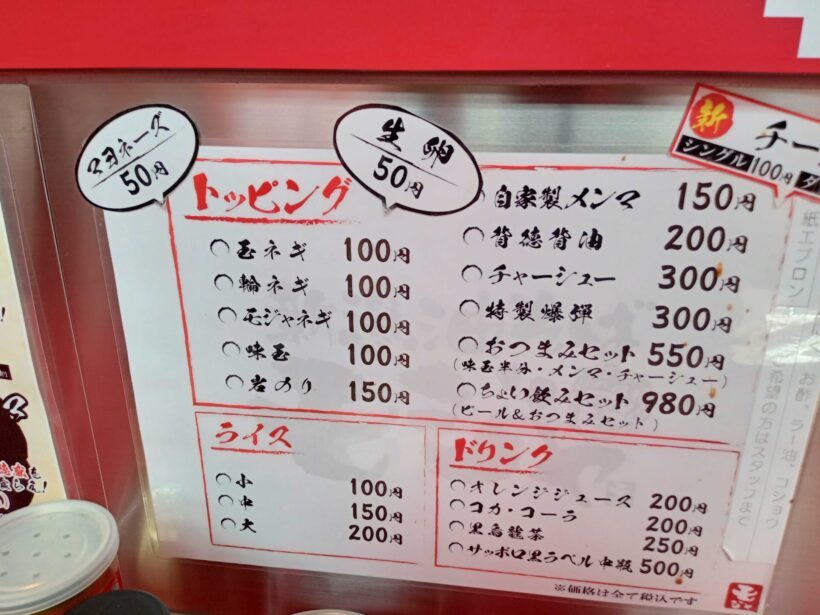 マヨネーズ
50円
生卵
50円
新
チー
シングル 100円 ダ
トッピング
○玉ネギ 100円
○輪ネギ 100円
○モジャネギ 100円
○味玉 100円
○岩のり 150円
○自家製メンマ 150円
○背徳背油 200円
○チャーシュー 300円
○特製爆弾 300円
○おつまみセット 550円
(味玉半分・メンマ・チャーシュー)
○ちょい飲みセット 980円
(ビール&おつまみセット)
ライス
○小 100円
○中 150円
○大 200円
ドリンク
○オレンジジュース 200円
○コカ・コーラ 200円
○黒烏龍茶 250円
○サッポロ黒ラベル中瓶 500円
※価格は全て税込です
紙エプロン
お酢、ラー油、コショウ
希望の方はスタッフまで